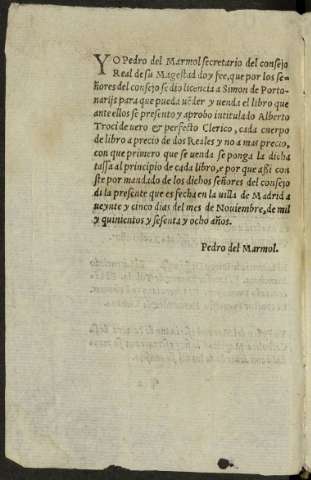 YO Pedro del Marmol secretario del consejo
Real de su Magestad doy fee, que por los se-
ñores del consejo se dio licencia a Simon de Porto-
narijs para que pueda vẽder y uenda el libro que
ante ellos se presento y aprobo intitulado Alberto
Troci de uero & perfecto Clerico, cada cuerpo
de libro a precio de dos Reales y no a mas precio,
con que primero que se uenda se ponga la dicha
tassa al principio de cada libro, e por que aßi con
ste por mandado de los dichos señores del consejo
di la presente que es fecha en la uilla de Madrid a
ueynte y cinco dias del mes de Nouiembre, de mil
y quinientos y sesenta y ocho años.
Pedro del Marmol.